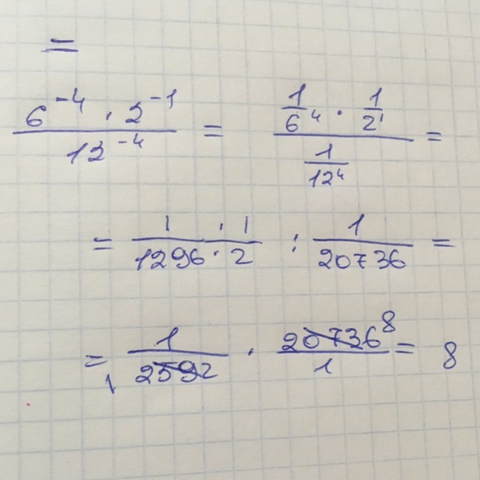 =
6⁻⁴ · 2⁻¹ / 12⁻⁴ = (1/6⁴ · 1/2¹) / (1/12⁴) =
= 1 · 1 / 1296 · 2 : 1/20736 =
= 1/2592 1 · 20736 8/1 = 8